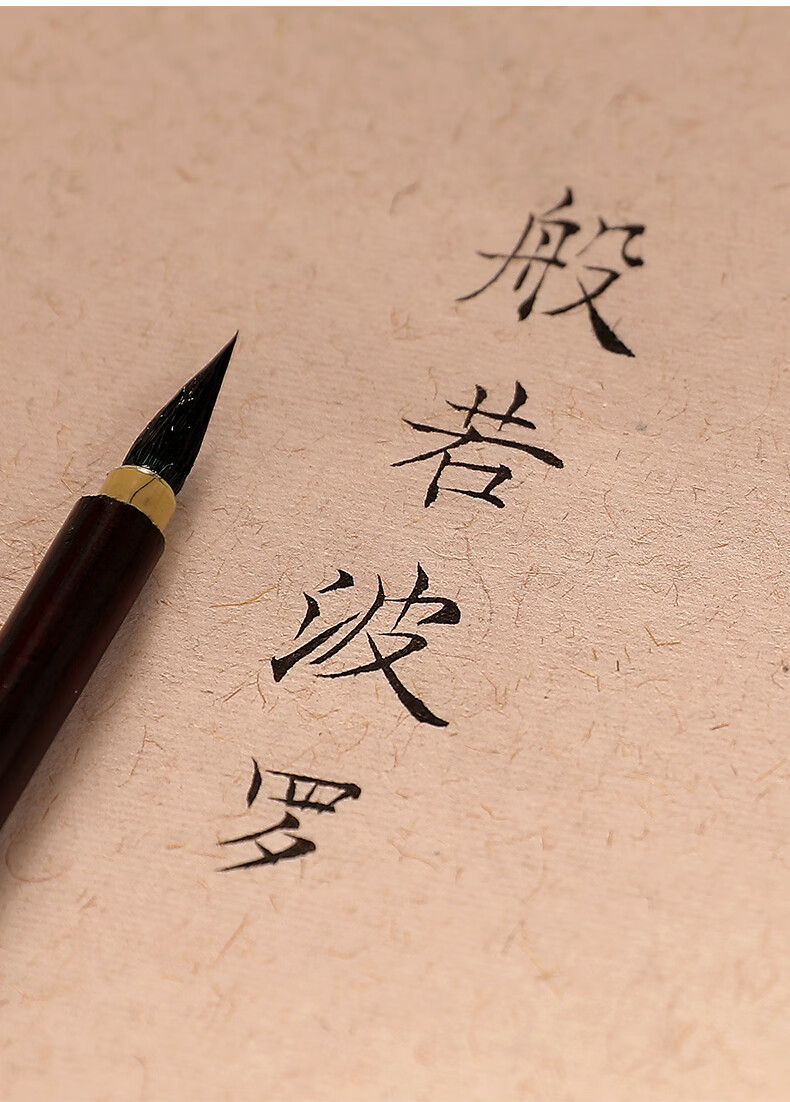 般若波罗